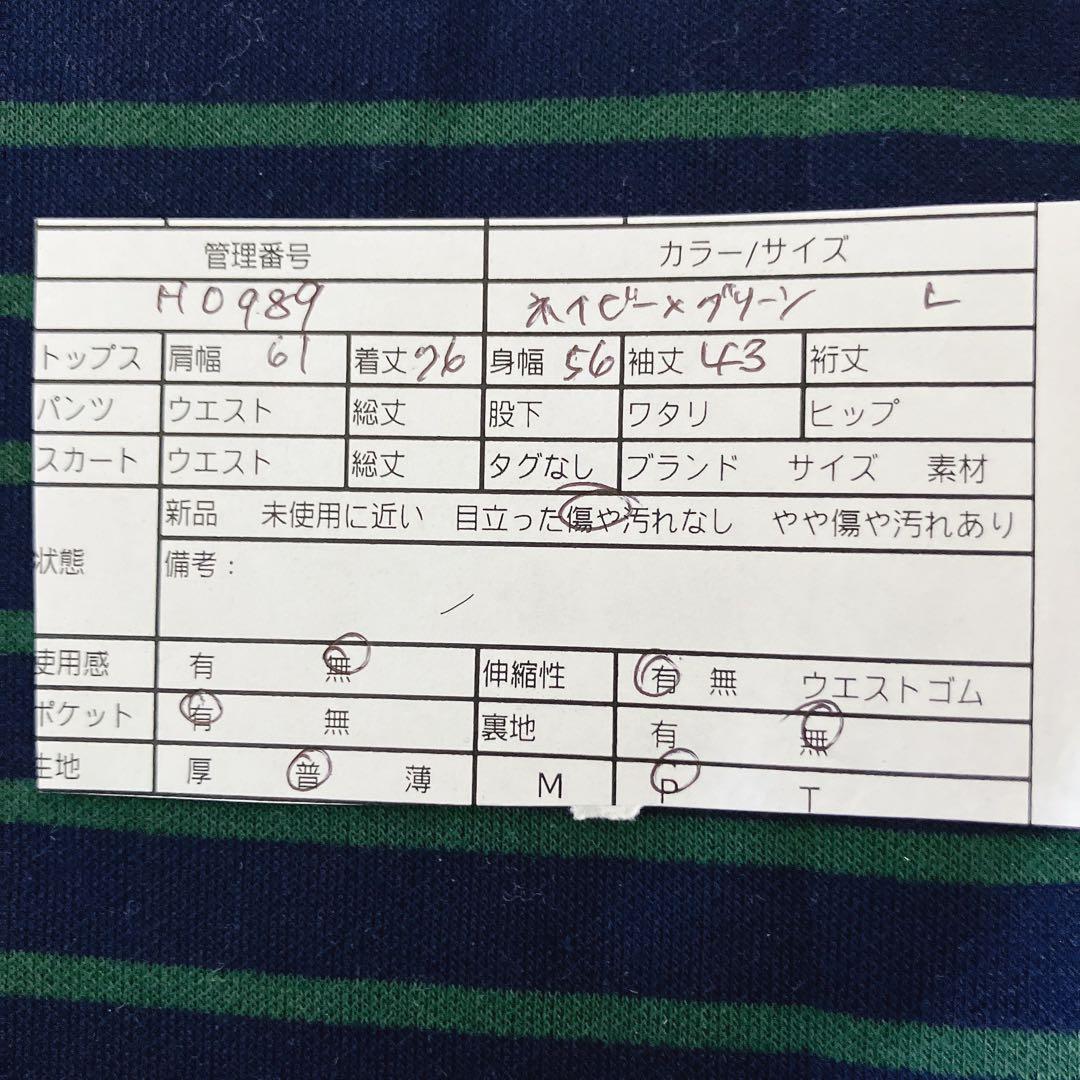 管理番号 カラー/サイズ
H0989 ネイビー×グリーン L
トップス 肩幅 61 着丈 76 身幅 56 袖丈 43 裄丈
パンツ ウエスト 総丈 股下 ワタリ ヒップ
スカート ウエスト 総丈 タグなし ブランド サイズ 素材
新品 未使用に近い 目立った傷や汚れなし やや傷や汚れあり
状態 備考：
使用感 有 無 伸縮性 有 無 ウエストゴム
ポケット 有 無 裏地 有 無
生地 厚 普 薄 M P T